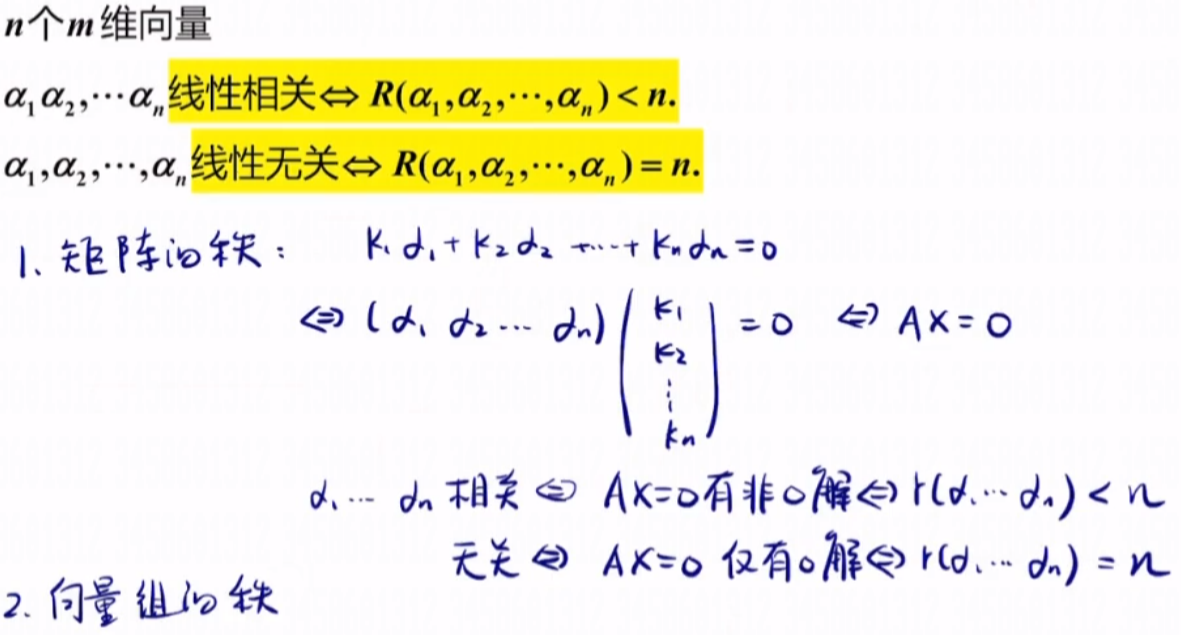 n个m维向量
α₁α₂,⋯αₙ线性相关⇔ R(α₁,α₂,⋯,αₙ)<n.
α₁,α₂,⋯,αₙ线性无关⇔ R(α₁,α₂,⋯,αₙ)=n.
1、矩阵的秩： k₁α₁+k₂α₂+⋯+kₙαₙ=0
⇔ (α₁ α₂⋯ αₙ)(k₁ k₂ ⋮ kₙ)=0 ⇔ AX=0
α₁⋯ αₙ 相关 ⇔ AX=0有非0解⇔ r(α₁⋯ αₙ)<n
无关 ⇔ AX=0 仅有0解⇔ r(α₁⋯ αₙ)=n
2、向量组的秩